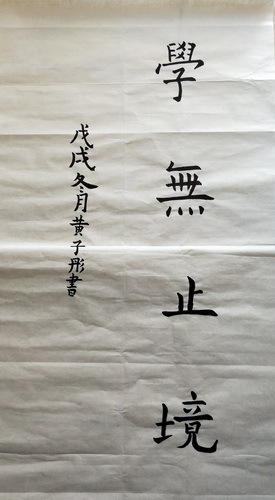 學無止境
戊戌冬月黄子彤書